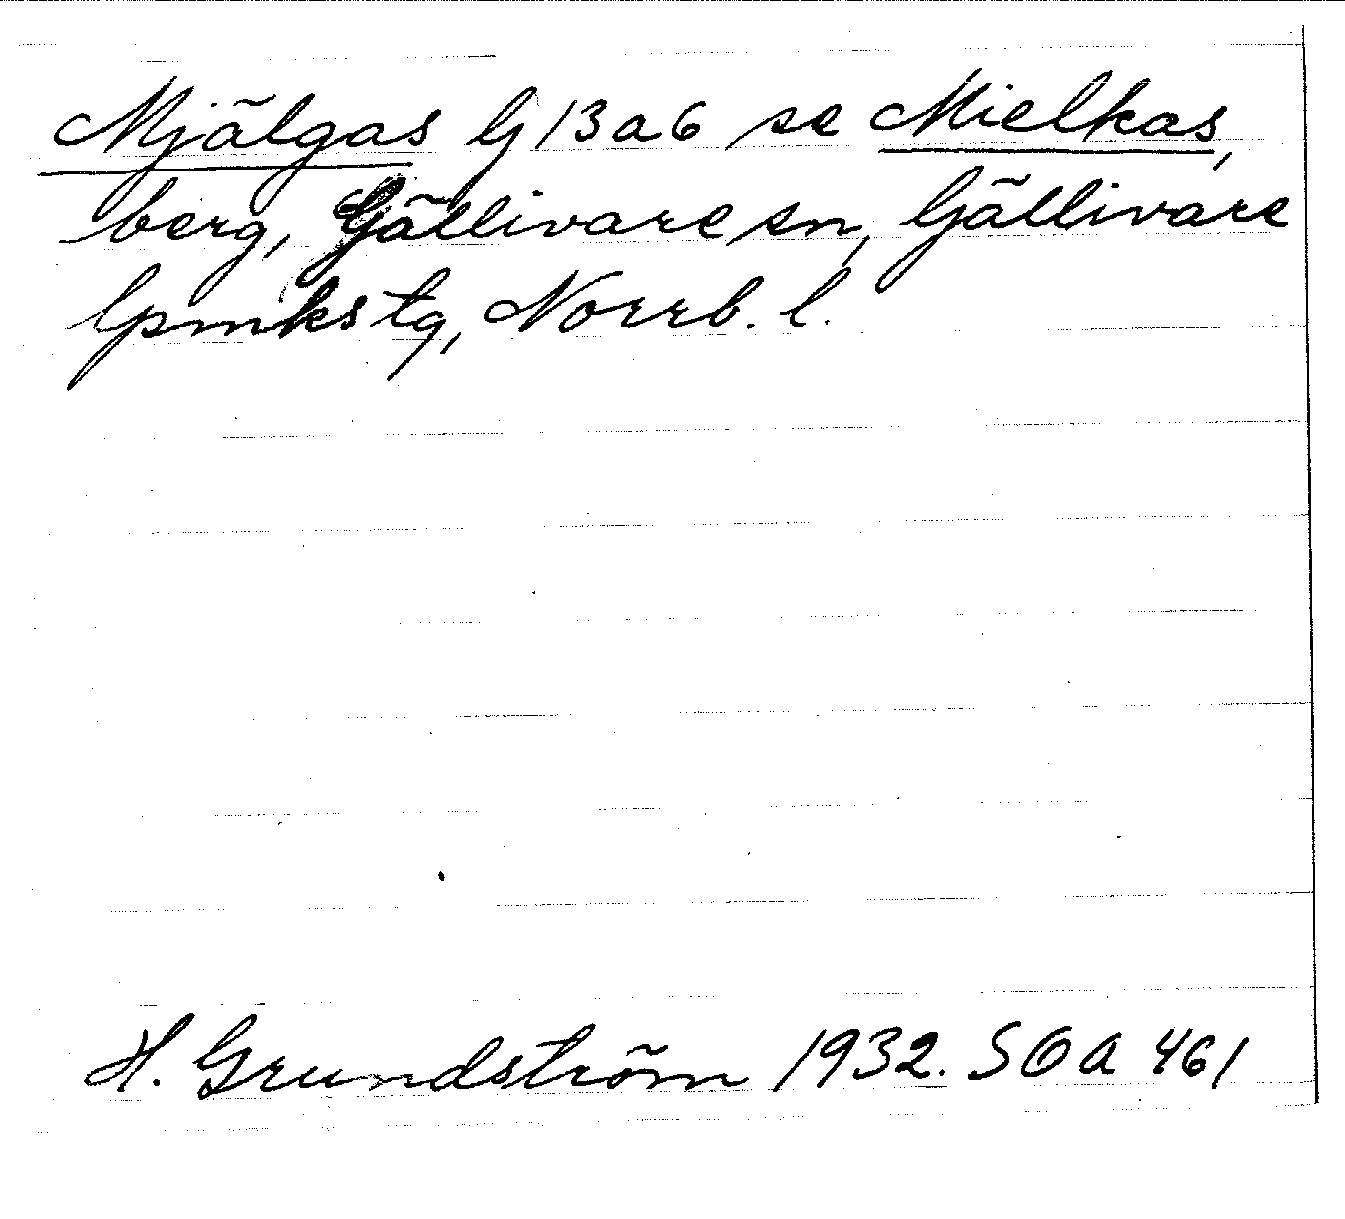 Mjälgas Gj 13 a 6 se Mielkas,
berg, Gällivare sn, Gällivare
lpmks tg, Norrb. l.
H. Grundström 1932. SOA 461